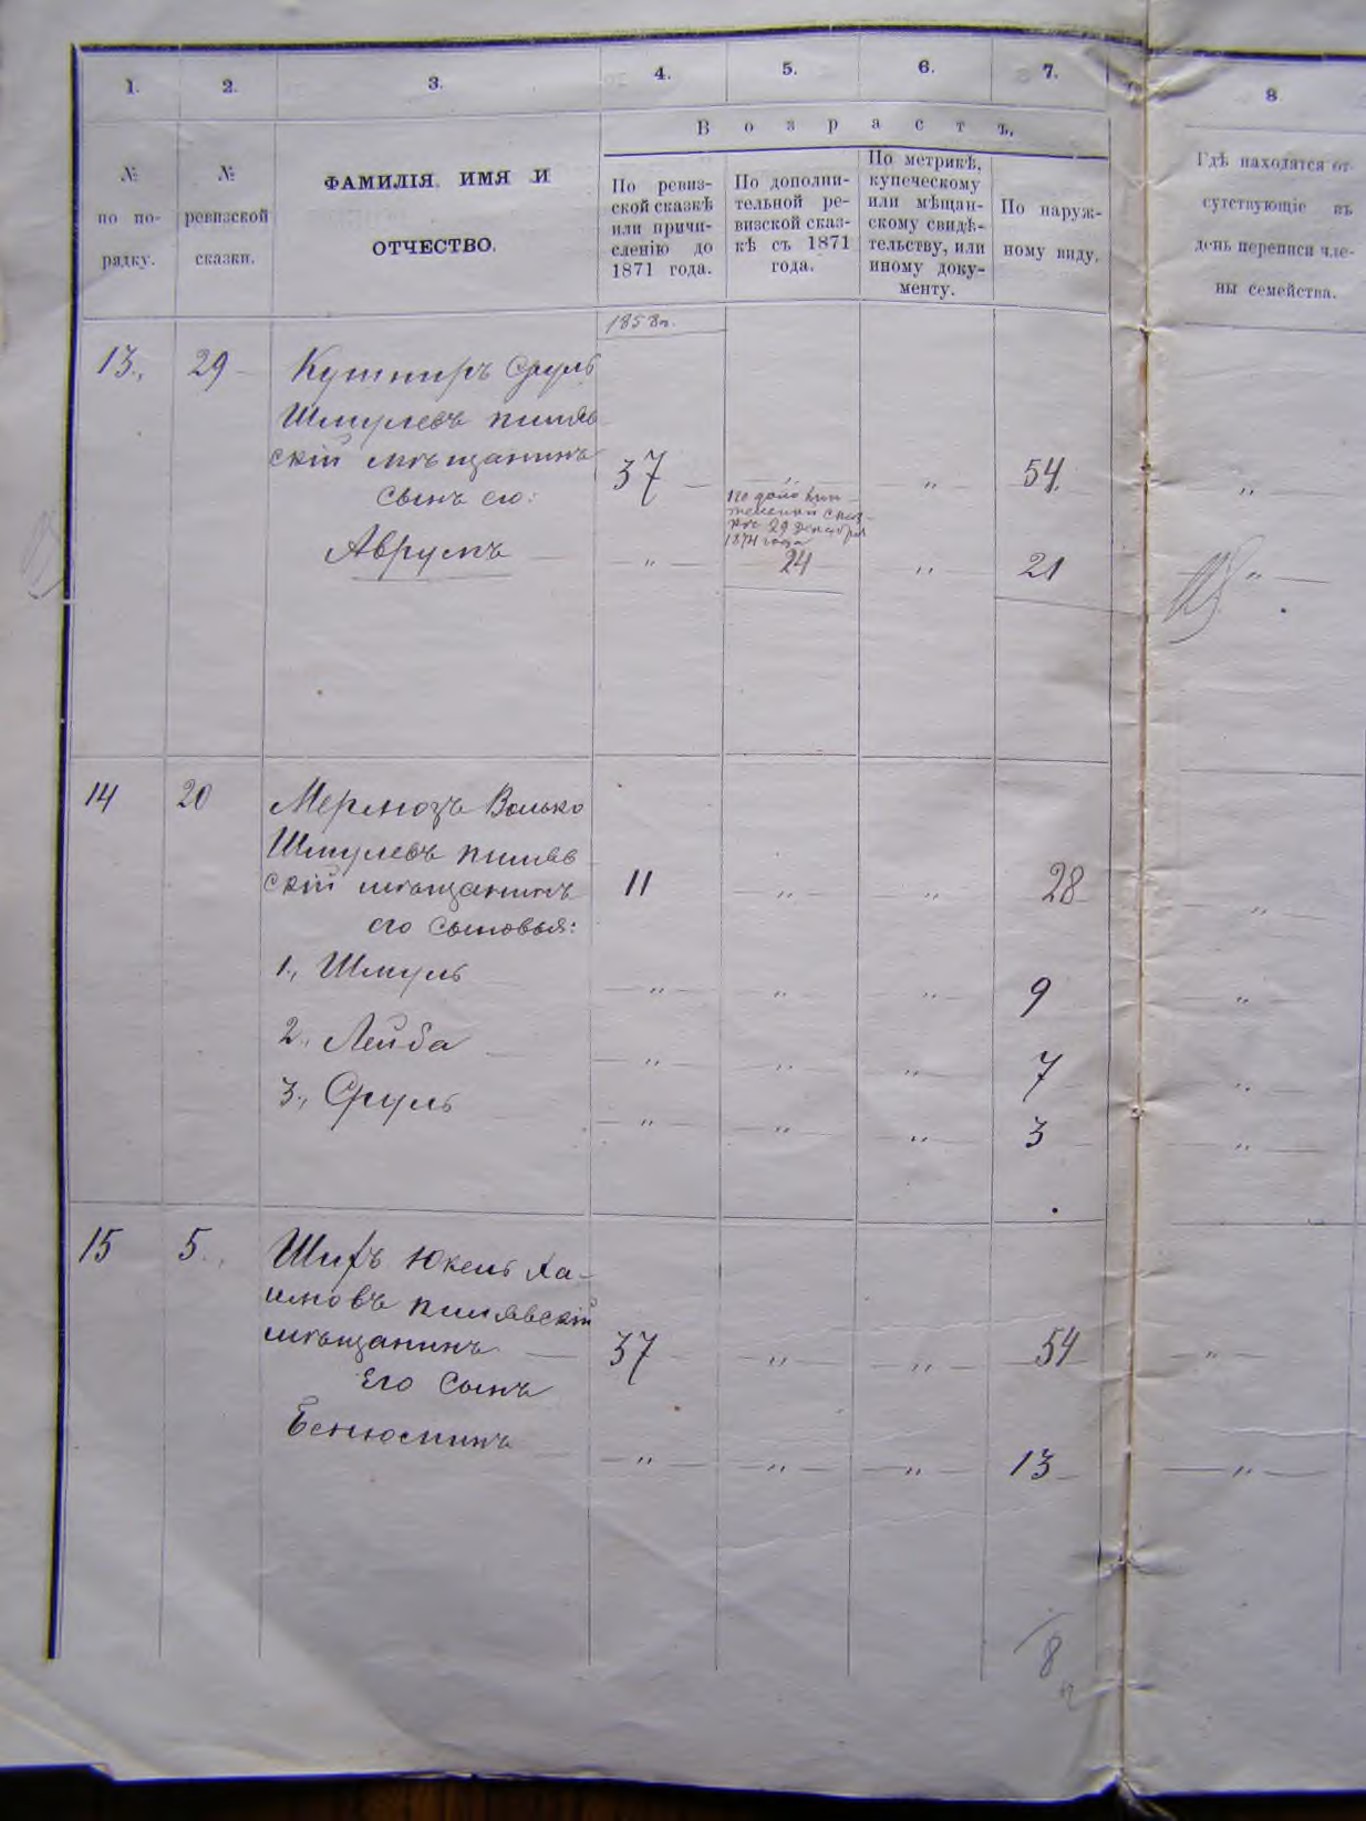 1. 2. 3. 4. 5. 6. 7. 8
№ по по-рядку.
№ ревизской сказки.
ФАМИЛІЯ, ИМЯ И
ОТЧЕСТВО.
Возрастъ.
По ревиз-
ской сказкѣ
или причи-
сленію до
1871 года.
По дополни-
тельной ре-
визской сказ-
кѣ съ 1871
года.
По метрикѣ,
купеческому
или мѣщан-
скому свидѣ-
тельству, или
иному доку-
менту.
По наруж-
ному виду.
Гдѣ находятся от-
сутствующіе въ
день переписи чле-
ны семейства.
1858 г.
13., 29 Кушниръ Сруль
Шмулевъ пиляв
скій мѣщанинъ 37 " " 54 "
сынъ его:
по допол
сказ-
кѣ 29 декабря
1874 года
Аврумъ " 24 " 21 "
14 20 Мермозъ Волько
Шмулевъ пиляв
скій мѣщанинъ 11 " " 28 "
его сыновья:
1., Шмуль " " " 9 "
2., Лейба " " " 7 "
3., Сруль " " " 3 "
15 5., Шифъ Юкель Ха-
имовъ пилявскій
мѣщанинъ 37 " " 54 "
Его сынъ
Бенюминъ " " " 13 "
8